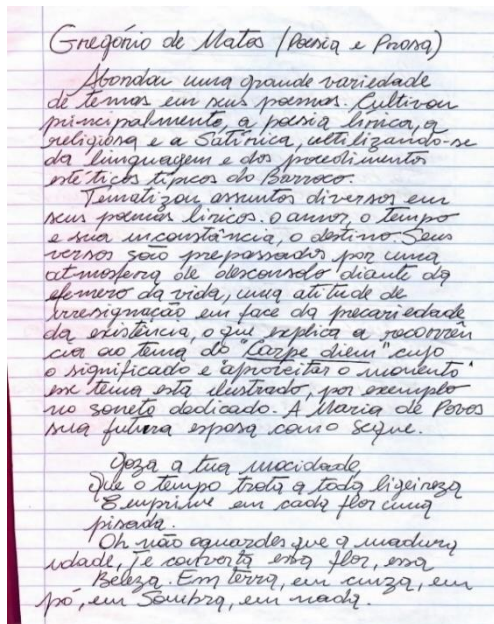 Gregório de Matos (Poesia e Prosa)
Abordou uma grande variedade
de temas em seus poemas. Cultivou
principalmente, a poesia lírica, a
religiosa e a Satírica, utilizando-se
da linguagem e dos procedimentos
estéticos típicos do Barroco.
Tematizou assuntos diversos em
seus poemas líricos. o amor, o tempo
e sua inconstância, o destino. Seus
versos são prepassados por uma
atmosfera de desconsolo diante da
efemero da vida, uma atitude de
irresignação em face da precariedade
da existência, o que explica a recorrên
cia ao tema do "Carpe diem" cujo
o significado e "aproveitar o momento"
esse tema esta ilustrado, por exemplo
no soneto dedicado. A Maria de Povos
sua futura esposa como segue.
Goza a tua mocidade
Que o tempo trota a toda ligeireza
E emprime em cada flor uma
pisada.
Oh não aguardes que a madura
idade, Te converta essa flor, essa
Beleza. Em terra, em cinza, em
pó, em Sombra, em nada.